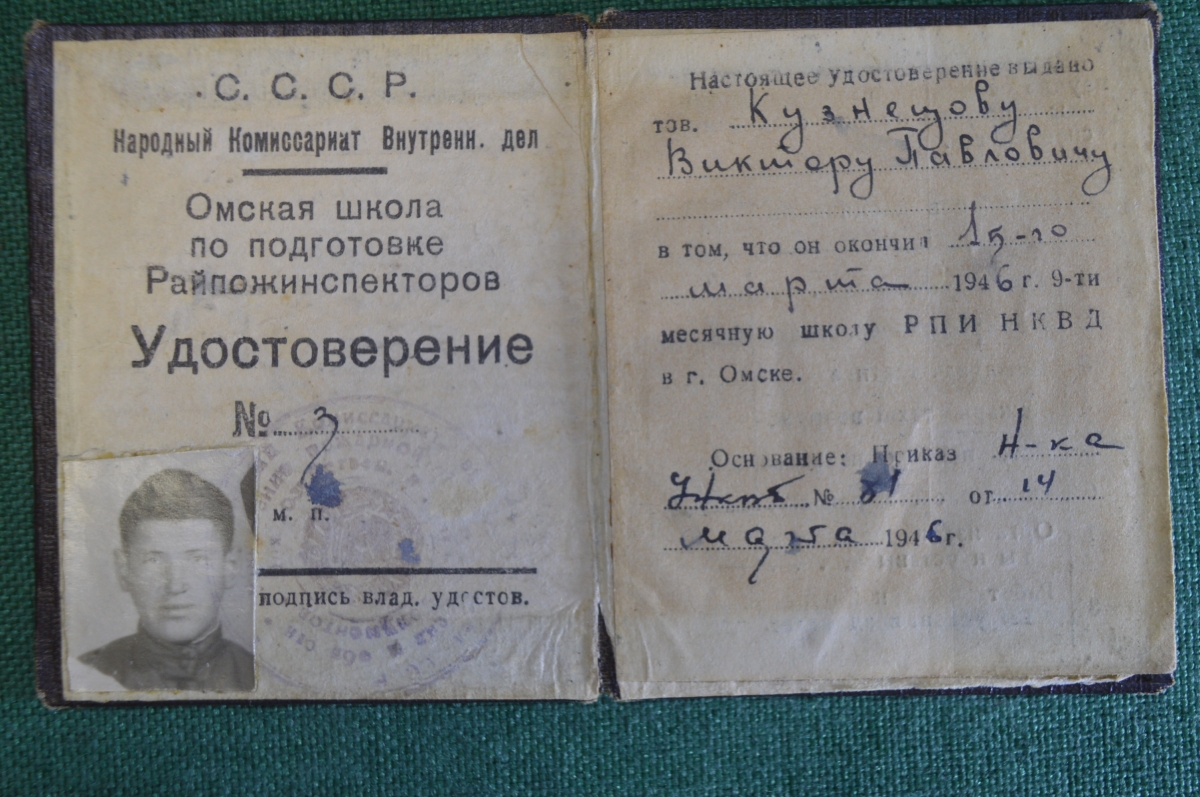 С. С. С. Р.
Народный Комиссариат Внутренн. дел
Омская школа
по подготовке
Райпожинспекторов
Удостоверение
№ 3
м. п.
подпись влад. удостов.
Настоящее удостоверение выдано
тов. Кузнецову
Виктору Павловичу
в том, что он окончил 15-го
марта 1946 г. 9-ти
месячную школу РПИ НКВД
в г. Омске.
Основание: Приказ Н-ка
№ 31 от 14
марта 1946 г.